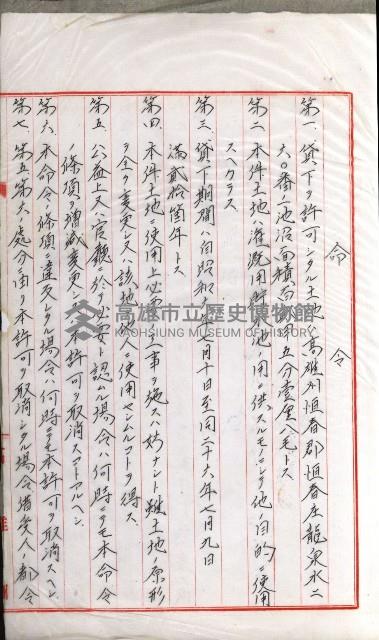 命令
第一、貸下ヲ許可シタル土地ハ高雄州恒春郡恒春庄龍泉水二
六〇番ノ池沼面積 五分壹厘八毛トス
第二、本件土地ハ灌漑用 池ノ用ニ供スルモノニシテ他目的ニ使用
スヘカラス
第三、貸下期間ハ自昭和 年七月十日至同二十六年七月九日
滿貳拾箇年トス
第四、本件土地ノ使用上必要 工事ヲ施スハ妨ナシト雖土地ノ原形
ヲ全ク変更シ又ハ該地 人ニ使用セシムルコトヲ得ス
第五、公益上又ハ官廳ニ於テ必要ト認ムル場合ハ何時ニテモ本命令
ノ條項ヲ增減変更シ 本許可ヲ取消スコトアルヘシ
第六、本命令ノ條項ニ違反シタル場合ハ何時ニテモ本許可ヲ取消スヘシ
第七、第五第六ノ處分ニ由リ本許可ヲ取消シタル場合借受人ノ都合
高雄市立歷史博物館
KAOHSIUNG MUSEUM OF HISTORY